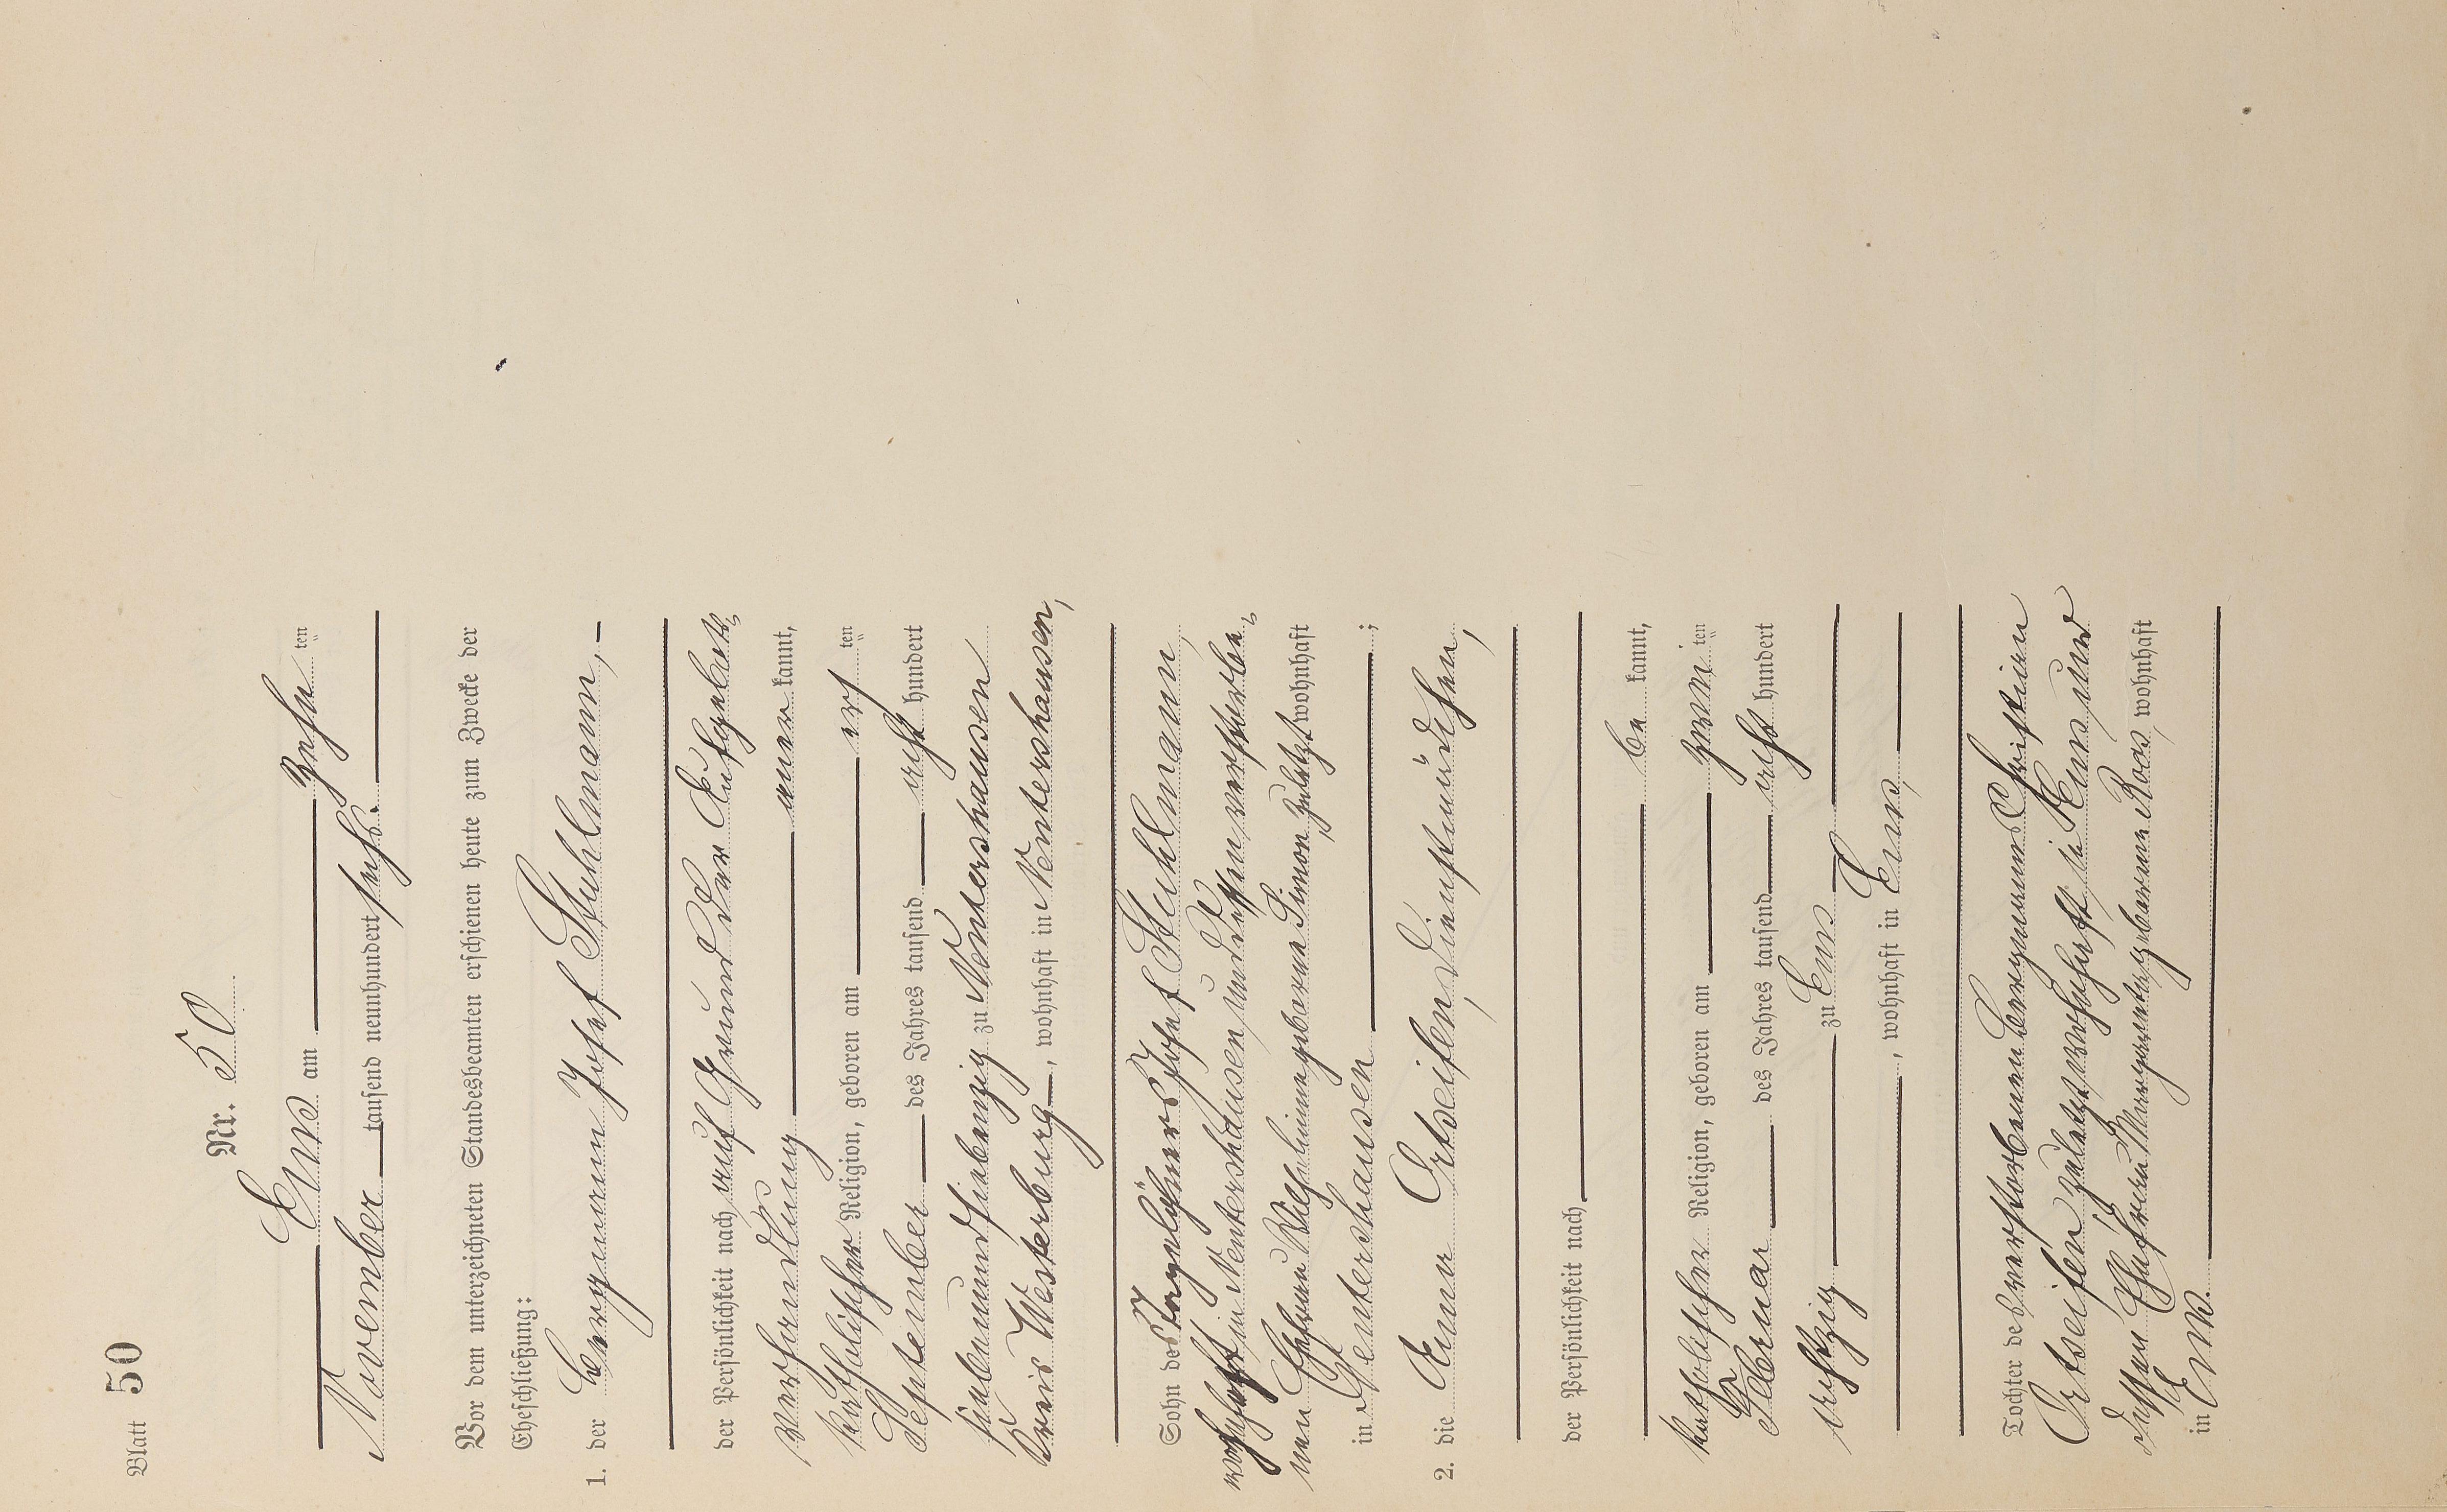 Blatt 50
Nr. 50
Ems am zehn ten
November tausend neunhundert sechs.
Vor dem unterzeichneten Standesbeamten erschienen heute zum Zwecke der
Eheschließung:
1. der Bergmann Josef Stuhlmann,
der Persönlichkeit nach auf Grund der Aufgebots-
verhandlung aner kannt,
katholischer Religion, geboren am ers ten
September des Jahres tausend acht hundert
siebenundsiebenzig zu Nentershausen
Kreis Westerburg, wohnhaft in Nentershausen,
Sohn des Tagelöhners Josef Stuhlmann,
wohnhaft in Nentershausen, und dessen verstorbe-
nen Ehefrau Wilhelmine geborene Simon, zuletzt wohnhaft
in Nentershausen ;
2. die Anna Ortseifen, Dienstmädchen,
der Persönlichkeit nach
be kannt,
katholischer Religion, geboren am zwei ten
Februar des Jahres tausend acht hundert
achtzig zu Ems
, wohnhaft in Ems,
Tochter des verstorbenen Bergmanns Christian
Ortseifen zuletzt wohnhaft in Ems und
dessen Ehefrau Margareta geborene Roos, wohnhaft
in Ems.